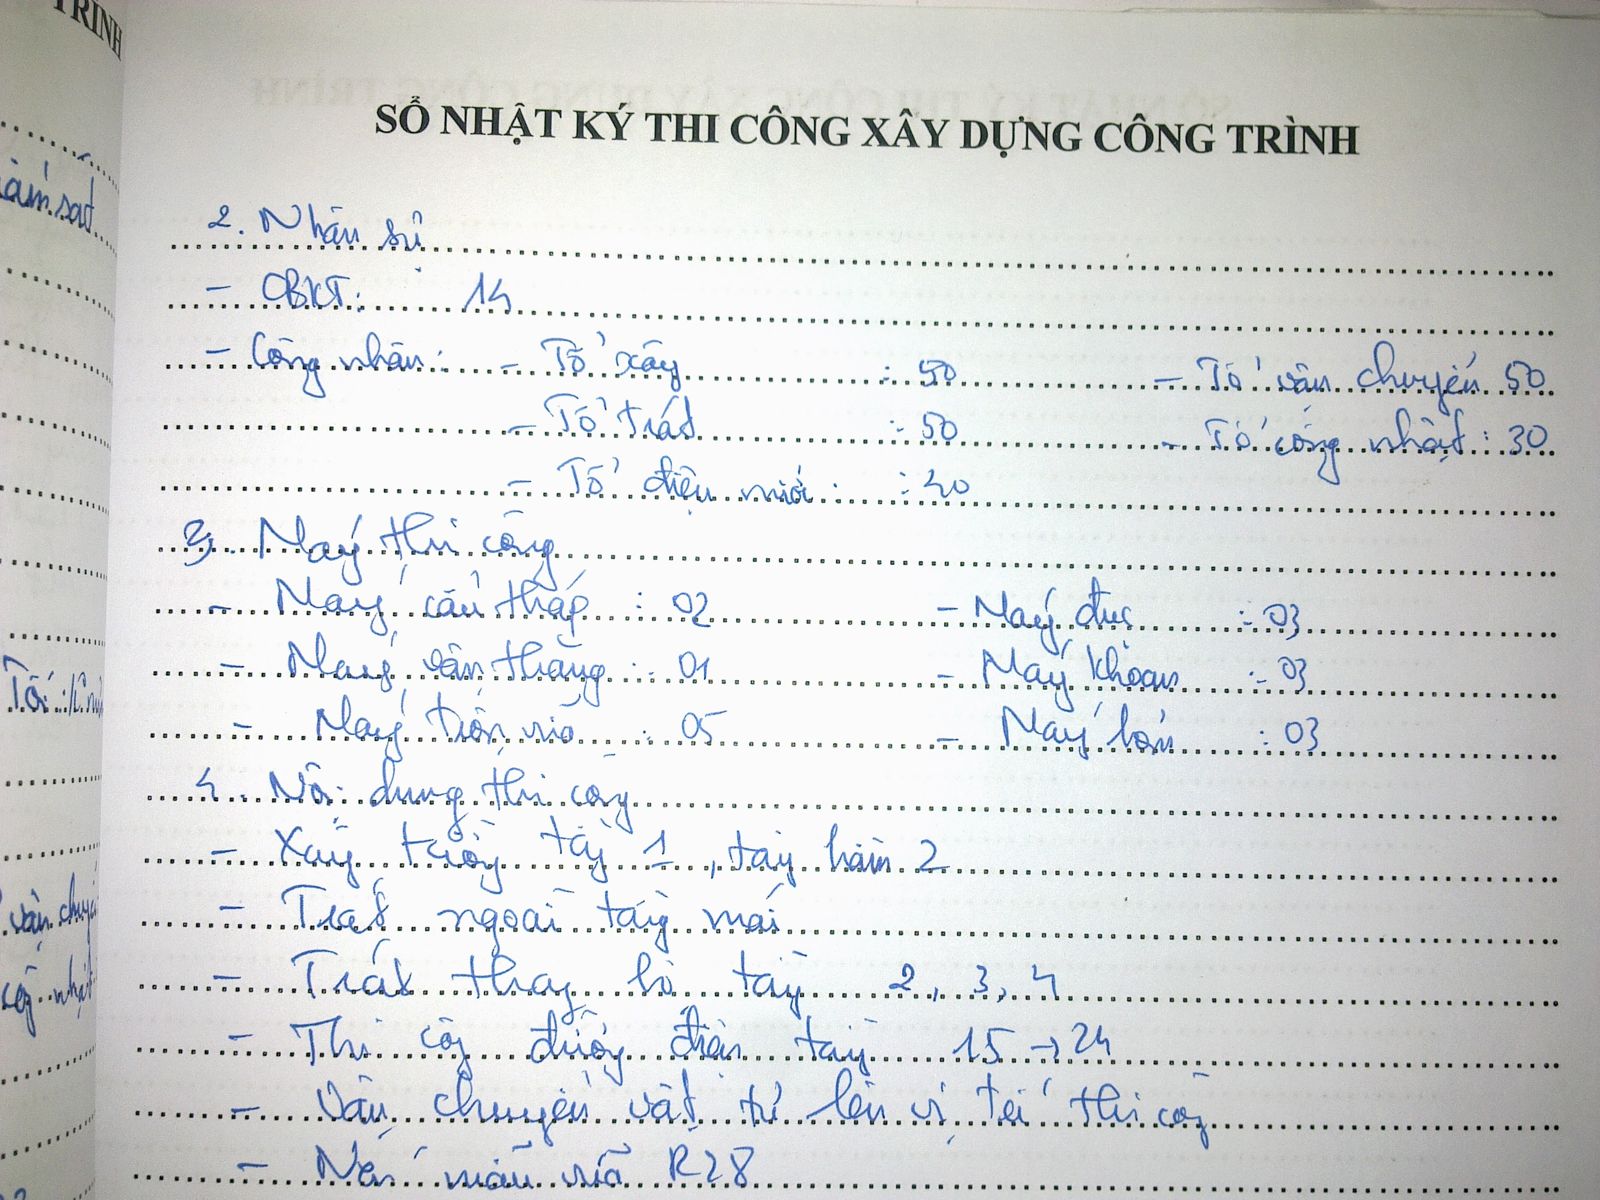 TRÌNH
SỔ NHẬT KÝ THI CÔNG XÂY DỰNG CÔNG TRÌNH
2. Nhân sự
- CBKT: 14
- Công nhân: - Tổ xây : 50 - Tổ vận chuyển 50
- Tổ trát : 50 - Tổ công nhật : 30
- Tổ điện nước : 40
3. Máy thi công
- Máy cẩu tháp : 02 - Máy đục : 03
- Máy vận thăng : 01 - Máy khoan : 03
- Máy trộn vữa : 05 - Máy hàn : 03
4. Nội dung thi công
- Xây tường tầng 1, tầng hầm 2
- Trát ngoài tầng mái
- Trát thang bộ tầng 2, 3, 4
- Thi công đường điện tầng 15 → 24
- Vận chuyển vật tư lên vị trí thi công
- Nén mẫu vữa R28